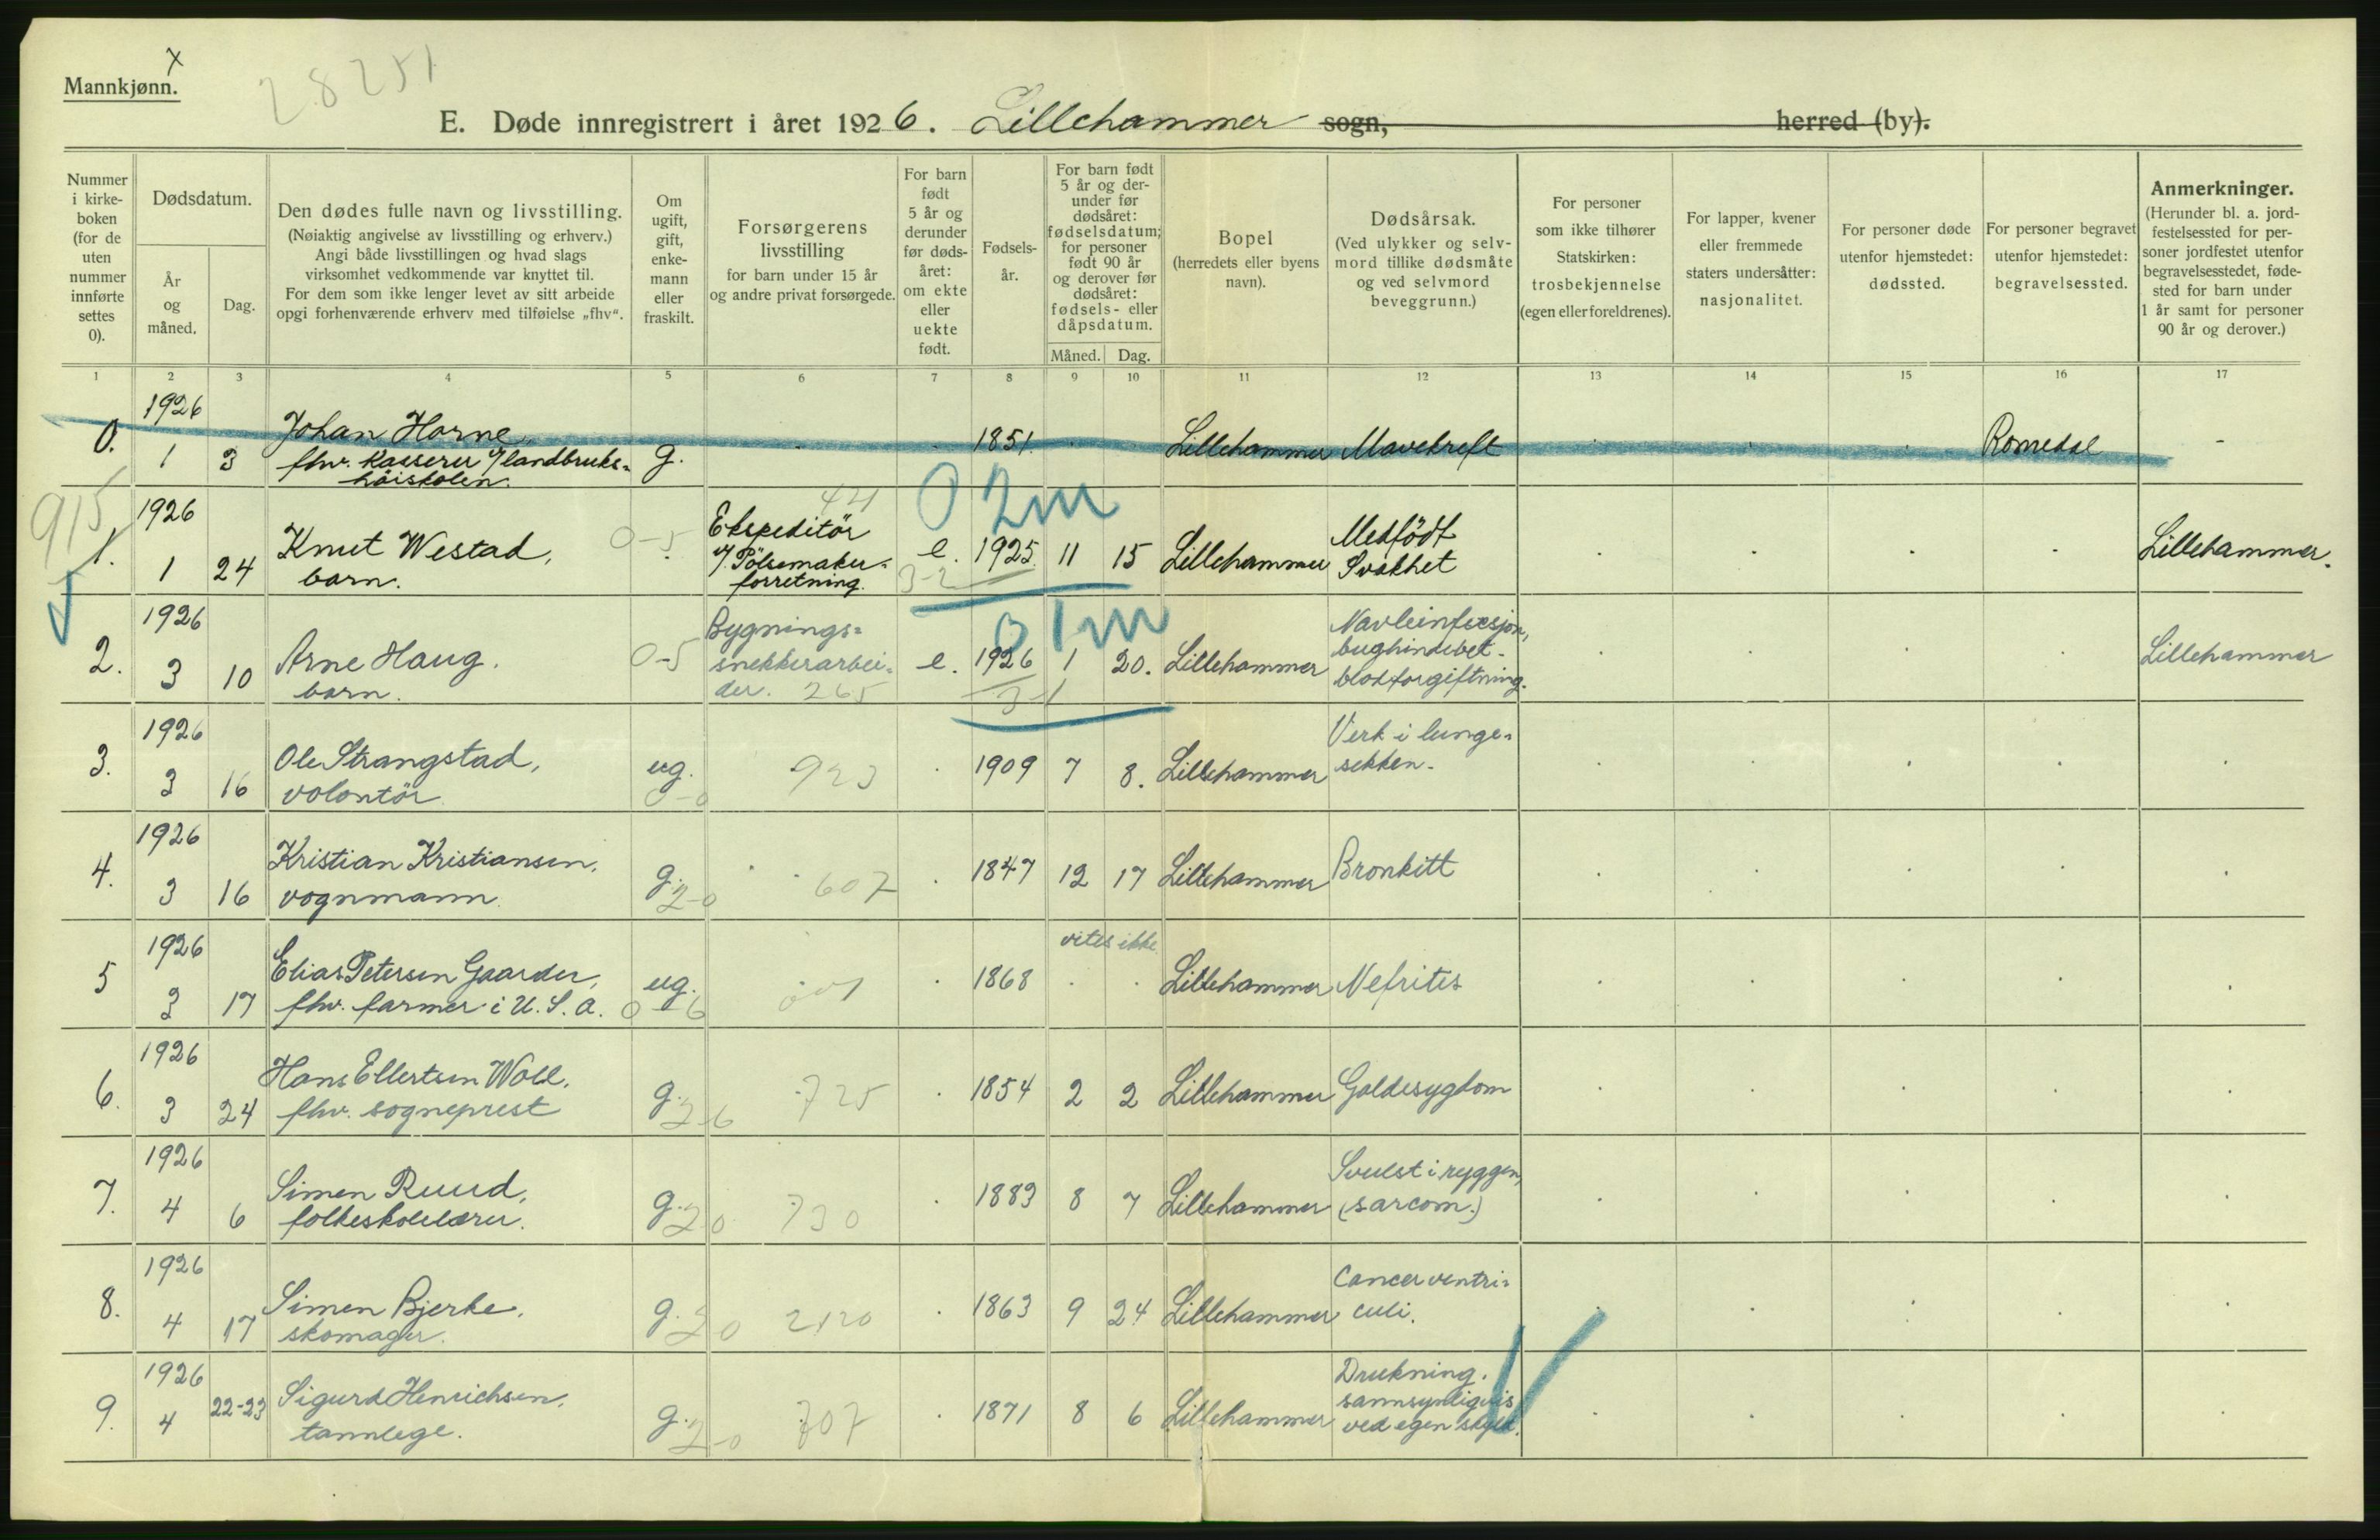 Mannkjønn. x
28251
E. Døde innregistrert i året 1926. Lillehammer sogn, herred (by).
Nummer i kirkeboken (for de uten nummer innførte settes 0).
Dødsdatum.
År og måned.
Dag.
Den dødes fulle navn og livsstilling.
(Nøiaktig angivelse av livsstilling og erhverv.)
Angi både livsstillingen og hvad slags
virksomhet vedkommende var knyttet til.
For dem som ikke lenger levet av sitt arbeide
opgi forhenværende erhverv med tilføielse „fhv“.
Om ugift, gift, enkemann eller fraskilt.
Forsørgerens livsstilling
for barn under 15 år
og andre privat forsørgede.
For barn født 5 år og derunder før dødsåret: om ekte eller uekte født.
Fødselsår.
For barn født 5 år og derunder før dødsåret: fødselsdatum; for personer født 90 år og derover før dødsåret: fødsels- eller dåpsdatum.
Måned. Dag.
Bopel
(herredets eller byens navn).
Dødsårsak.
(Ved ulykker og selvmord tillike dødsmåte og ved selvmord beveggrunn.)
For personer som ikke tilhører Statskirken: trosbekjennelse (egen eller foreldrenes).
For lapper, kvener eller fremmede staters undersåtter: nasjonalitet.
For personer døde utenfor hjemstedet: dødssted.
For personer begravet utenfor hjemstedet: begravelsessted.
Anmerkninger.
(Herunder bl. a. jordfestelsessted for personer jordfestet utenfor begravelsesstedet, fødested for barn under 1 år samt for personer 90 år og derover.)
1 2 3 4 5 6 7 8 9 10 11 12 13 14 15 16 17
0. 1926 1 3 Johan Horne, fhv. kasserer v/ landbrukshöiskolen. g. 1851 Lillehammer Mavekreft Romedal -
915
1. 1926 1 24 Knut Westad, barn. 0-5 Ekspeditör v/ Pölsemakerforretning. e. 1925 11 15 Lillehammer Medfödt Svakhet Lillehammer.
0 2m
3-2
2. 1926 3 10 Arne Haug. barn. 0-5 Bygningssnekkerarbeider. 265 e. 1926 1 20. Lillehammer Navleinfeksjon, bughindebet. blodforgiftning. Lillehammer
0 1m
3-1
3. 1926 3 16 Ole Strangstad, volontör. ug. 0-0 923 1909 7 8. Lillehammer Verk i lungesekken.
4. 1926 3 16 Kristian Kristiansen, vognmann. g. 2-0 607 1847 12 17 Lillehammer Bronkitt
5 1926 3 17 Elias Petersen Gaarder, fhv. farmer i U.S.A. ug. 0-6 1868 vites ikke Lillehammer Nefrites
6. 1926 3 24 Hans Ellertsen Woll, fhv. sogneprest g. 2-6 725 1854 2 2 Lillehammer Galdesygdom
7. 1926 4 6 Simen Ruud, folkeskolelærer. g. 20 730 1883 8 7 Lillehammer Svulst i ryggen, (sarcom.)
8. 1926 4 17 Simen Bjerke, skomager. g. 20 2120 1863 9 24 Lillehammer Cancer ventriculi.
9. 1926 4 22-23 Sigurd Henrichsen, tannlege. g. 2-0 707 1871 8 6 Lillehammer Drukning. sannsynligvis ved egen skyld.